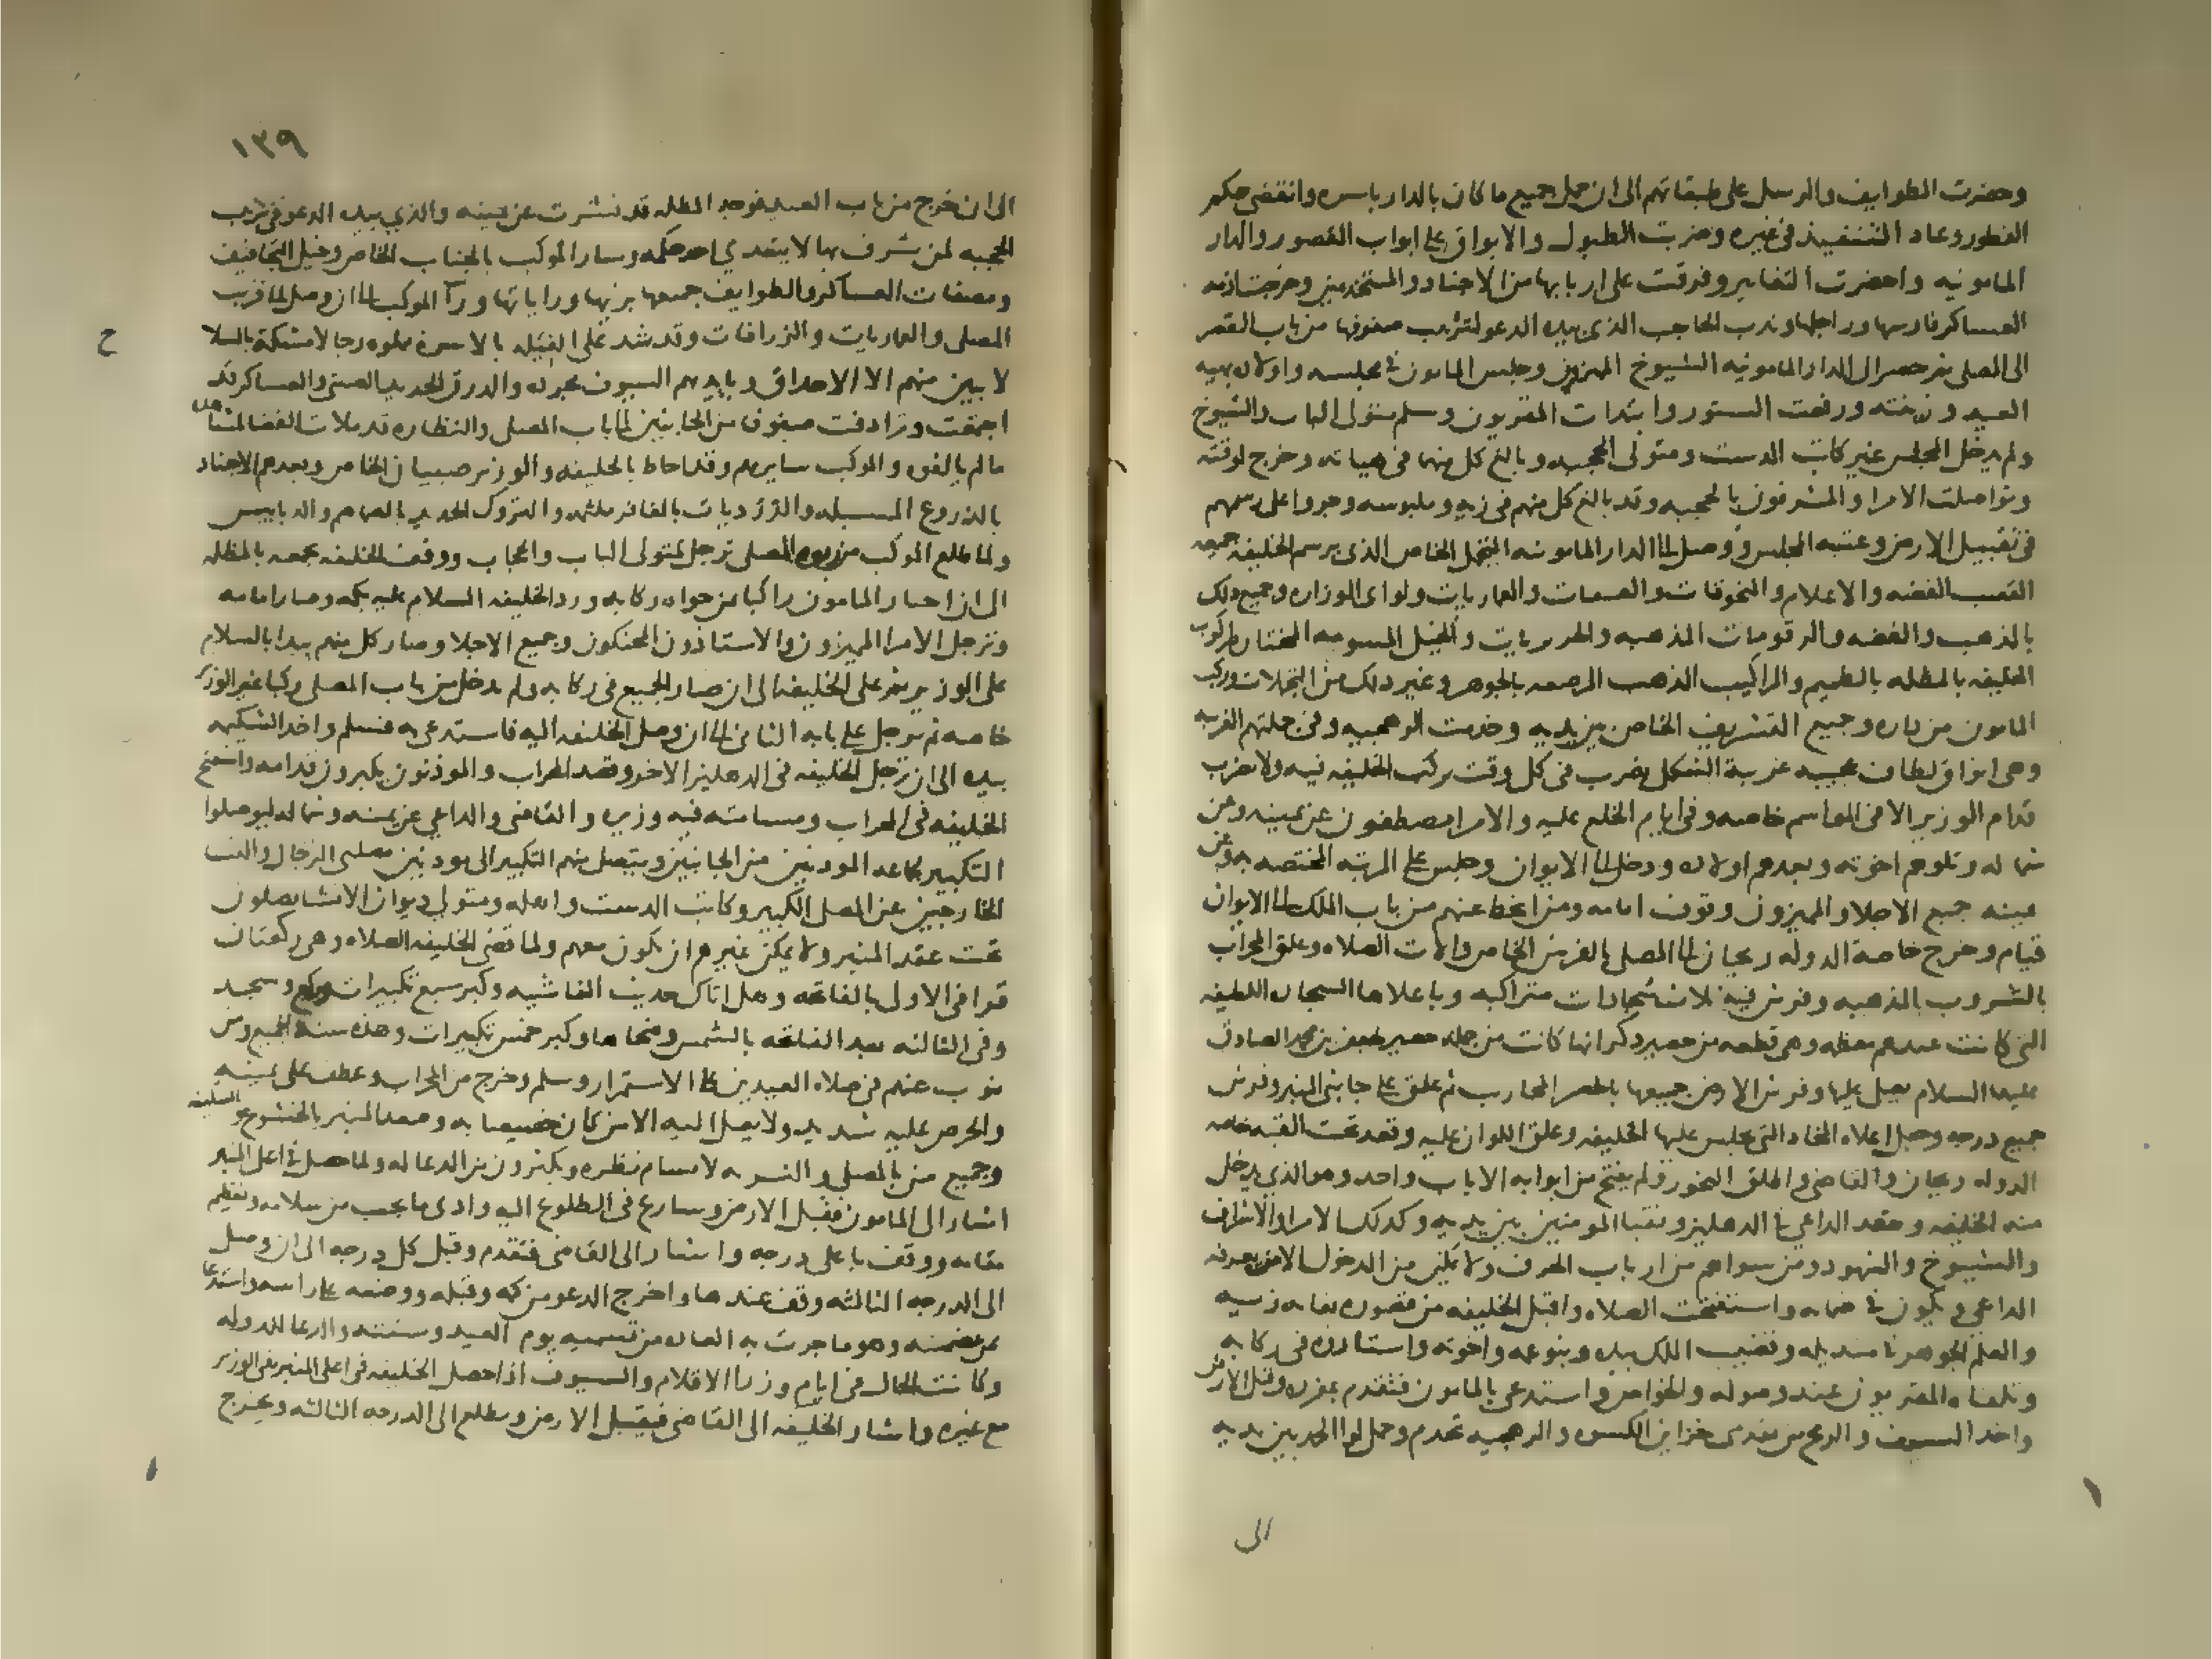 وحضرت الطوايف والرسل على طبقاتهم الى ان حمل جميع ما كان بالدار باسره وانقضى حكم
الفطور وعاد التنفيذ فى غيره وضربت الطبول والابواق على ابواب القصور والدار
المامونيه واحضرت التغايير وفرقت على اربابها من الاجناد والمستخدمين وخرجت ازمه
العساكر فارسها وراجلها وندب الحاجب الذى بيده الدعو لترتيب صفوفها من باب القصر
الى المصلى ثم حضر الى الدار المامونيه الشيوخ المميزين وجلس المامون فى مجلسه واولاده بهيه
العيد وزينته ورفعت الستور وابتدات المقريون وسلم متولى الباب والشيوخ
ولم يدخل المجلس غير كاتب الدست ومتولى الحجبه وبالغ كل منهما فى هياته وخرج لوقته
وتواصلت الامرا والمشرفون بالحجبه وقد بالغ كل منهم فى زيه وملبوسه وجروا على رسمهم
فى تقبيل الارض وعتبه المجلس ووصل الى الدار المامونيه التجمل الخاص الذى برسم الخليفه جميعه
القصب الفضه والاعلام والمنجوقات والعصبات والعماريات ولواى الوزاره وجميع ذلك
بالذهب والفضه والرقومات المذهبه والحرريات والخيل المسومه المختاره لركوب
الخليفه بالمظله بالطميم والمراكيب الذهب المرصعه بالجوهر وغير ذلك من التجملات وركب
المامون من داره وجميع التشريف الخاص بين يديه وخدمت الرهجيه وفى جملتهم الغربيه
وهى ابواق لطاف عجيبه غريبة الشكل يضرب فى كل وقت يركب الخليفه فيه ولا يضرب
قدام الوزير الا فى المواسم خاصه وفى ايام الخلع عليه والامرا مصطفون عن يمينه وعن
شماله وتلوهم اخوته وبعدهم اولاده ودخل الى الايوان وجلس على المرتبه المختصه به وعن
يمينه جميع الاجلا والمميزون وقوف امامه ومن انحط عنهم من باب الملك الى الايوان
قيام وخرج خاصة الدوله ريحان الى المصلى بالفرش الخاص والات الصلاه وعلق المحراب
بالشروب المذهبه وفرش فيه ثلاث سجادات متراكبه وباعلاها السجاده اللطيفه
التى كانت عندهم معظمه وهى قطعه من حصير ذكر انها كانت من جمله حصير جعفر بن محمد الصادق
عليهما السلام يصلى عليها وفرش الارض جميعها بالحصر المحاريب ثم علق على جانبى المنبر وفرش
جميع درجه وجعل اعلاه المخاد التى يجلس عليها الخليفه وعلق اللوان عليه وقعد تحت القبه خاصه
الدوله ريحان والقاضى واطلق البخور ولم يفتح من ابوابه الا باب واحد وهو الذى يدخل
منه الخليفه ويقعد الداعى فى الدهليز ونقبا المومنين بين يديه وكذلك الامرا والاشراف
والشيوخ والشهود ومن سواهم من ارباب الحرف ولا يمكن من الدخول الا من يعرفه
الداعى ويكون فى ضمانه واستفتحت الصلاه واقبل الخليفه من قصوره بغايه زيه
والعلم الجوهر فى منديله وقضيب الملك بيده وبنو عمه واخوته واستاذوه فى ركابه
وتلقاه المقريون عند وصوله والخواص واستدعى بالمامون فتقدم بمفرده وقبل الارض
واخذ السيف والرمح من مقدمى خزاين الكسوه والرهجيه تخدم وحمل لوا الحمد بين يديه
الى
١٣٩
الى ان خرج من باب العيد فوجد المظله قد نشرت عن يمينه والذى بيده الدعو فى ترتيب
الحجبه لمن شرف بها لا يتعدى احد حكمه وسار الموكب بالجناب الخاص وخيل التخافيف
ومصفات العساكر والطوايف جميعها بزيها وراياتها ورا الموكب الى ان وصل الى قريب
المصلى والعماريات والزرافات وقد شد على الفيله بالاسره مملوه رجالا مشبكة بالسلا
ح
لا يبين منهم الا الاحداق وبايديهم السيوف مجرده والدرق الحديد الصينى والعساكر قد
اجتمعت وترادفت صفوف من الجانبين الى باب المصلى والنظاره قد ملات الفضا لمشاهده
ما لم يالفوه والموكب سايربهم وقد احاط بالخليفه والوزير صبيان الخاص وبعدهم الاجناد
بالدروع المسبله والزرديات بالمغافر ملثمه والبروك الحديد بالصماصم والدبابيس
ولما طلع الموكب من ربوة المصلى ترجل متولى الباب والحجاب ووقف الخليفه بجمعه بالمظله
الى ان اجتاز المامون راكبا من حواه ركابه ورد الخليفه السلام عليه بكمه وصار امامه
وترجل الامرا المميزون والاستاذون المحنكون وجميع الاجلا وصار كل منهم يبدا بالسلام
على الوزير ثم على الخليفه الى ان صار الجميع فى ركابه ولم يدخل من باب المصلى راكبا غير الوزير
خاصه ثم ترجل على بابه الثانى الى ان وصل الخليفه اليه فاستدعى به فسلم واخذ الشكيمه
بيده الى ان ترجل الخليفه فى الدهليز الاخر وقصد المحراب والموذنون يكبرون قدامه واستفتح
الخليفه فى المحراب وسامته فيه وزيره والقاضى والداعى عن يمينه وشماله ليوصلوا
التكبير لجماعه الموذنين من الجانبين ويتصل منهم التكبير الى موذنين مصلى الرجال والنسا
الخارجين عن المصلى الكبير وكاتب الدست واهله ومتولى ديوان الانشا يصلون
تحت عقد المنبر ولا يمكن غيرهم ان يكون معهم ولما قضى الخليفه الصلاه وهى ركعتان
قرا فى الاولى بالفاتحه وهل اتاك حديث الغاشيه وكبر سبع تكبيرات وركع وسجد
وفى الثانيه بعد الفاتحه بالشمس وضحاها وكبر خمس تكبيرات وهذه سنة الجميع ومن
ينوب عنهم فى صلاه العيدين على الاستمرار وسلم وخرج من المحراب وعطف على يمينه
والحرص عليه شديد ولا يصل اليه الا من كان خصيصا به وصعد المنبر بالخشوع والسكينه
وجميع من بالمصلى والتربه لا يسام نظره ويكثرون من الدعا له ولما حصل فى اعلى المنبر
اشار الى المامون فقبل الارض وسارع فى الطلوع اليه وادى ما يجب من سلامه وتعظيم
مقامه ووقف باعلى درجه واشار الى القاضى فتقدم وقبل كل درجه الى ان وصل
الى الدرجه الثالثه وقف عندها واخرج الدعو من كمه وقبله ووضعه على راسه واستدعا
من تضمنه وهو ما جرت به العاده من تسميه يوم العيد وسنته والدعا للدوله
وكانت الحال فى ايام وزرا الاقلام والسيوف اذا حصل الخليفه فى اعلى المنبر بقى الوزير
مع غيره واشار الخليفه الى القاضى فيقبل الارض ويطلع الى الدرجه الثالثه ويخرج